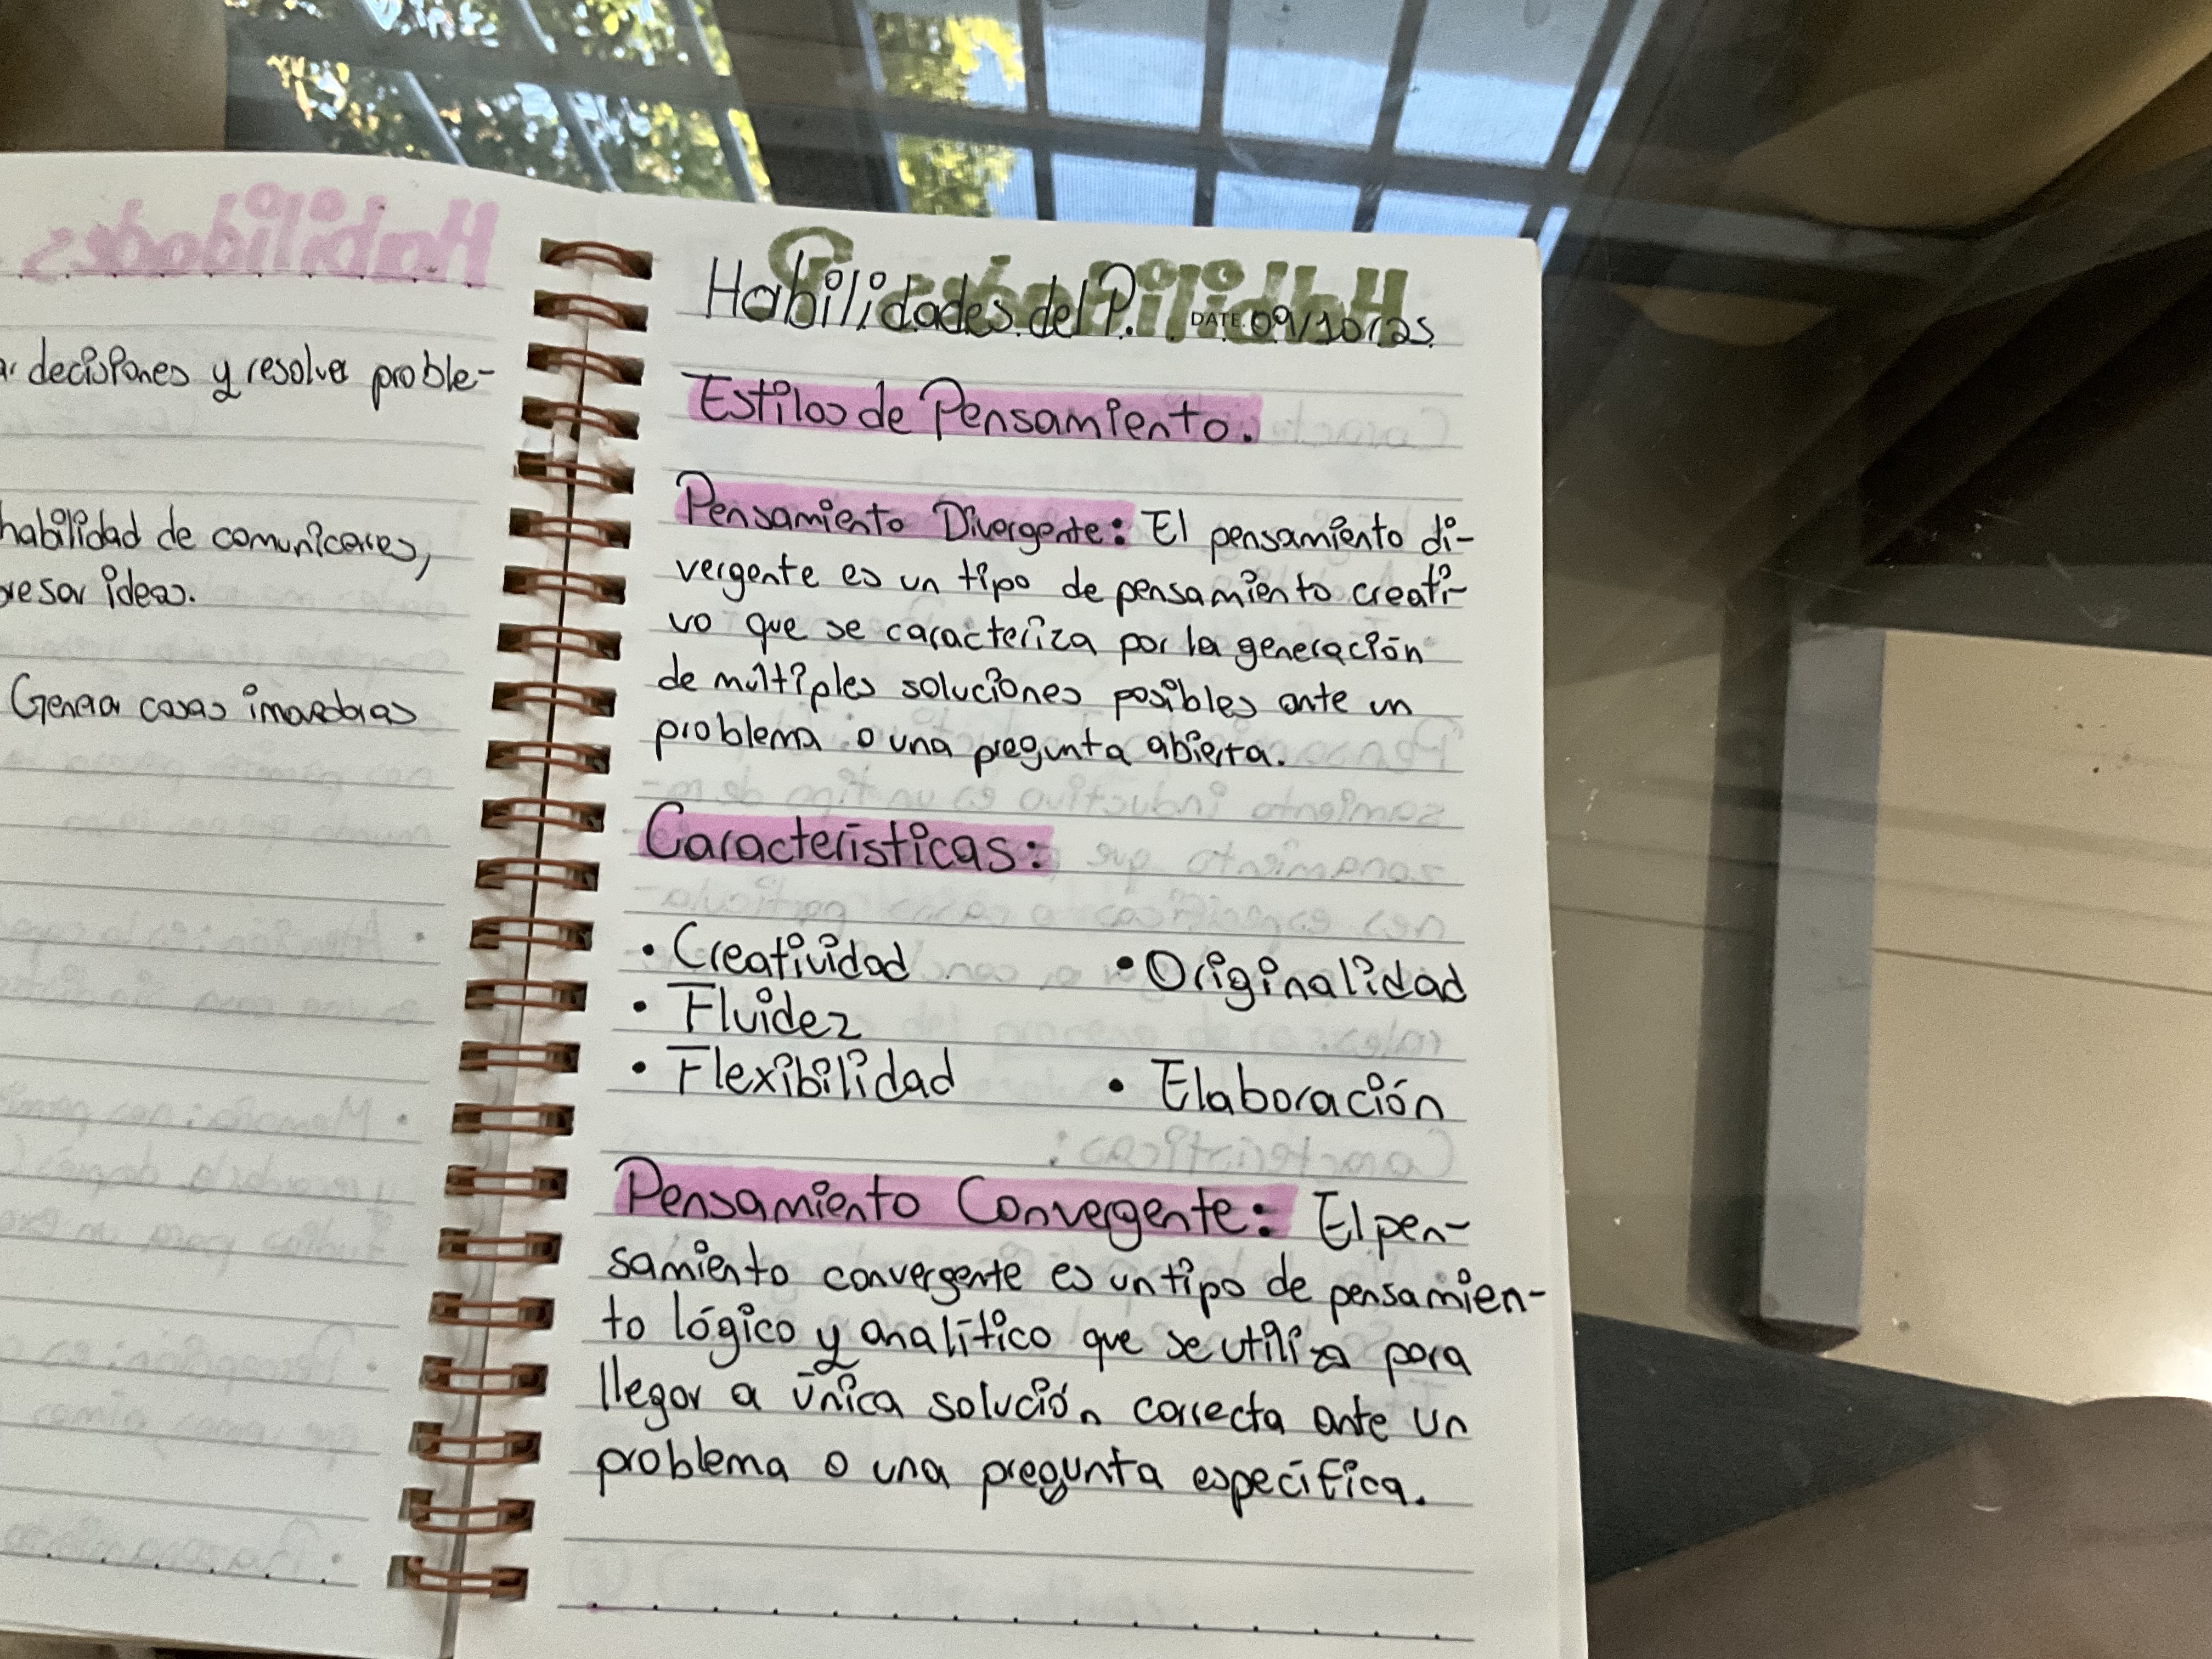 Habilidades
ar decisiones y resolver proble-
habilidad de comunicarnos,
resar ideas.
Generar cosas
Habilidades del P. DATE 09/10/25
Estilos de Pensamiento.
Pensamiento Divergente: El pensamiento di-
vergente es un tipo de pensamiento creati-
vo que se caracteriza por la generación
de múltiples soluciones posibles ante un
problema o una pregunta abierta.
Características:
• Creatividad • Originalidad
• Fluidez
• Flexibilidad • Elaboración
Pensamiento Convergente: El pen-
samiento convergente es un tipo de pensamien-
to lógico y analítico que se utiliza para
llegar a única solución correcta ante un
problema o una pregunta específica.